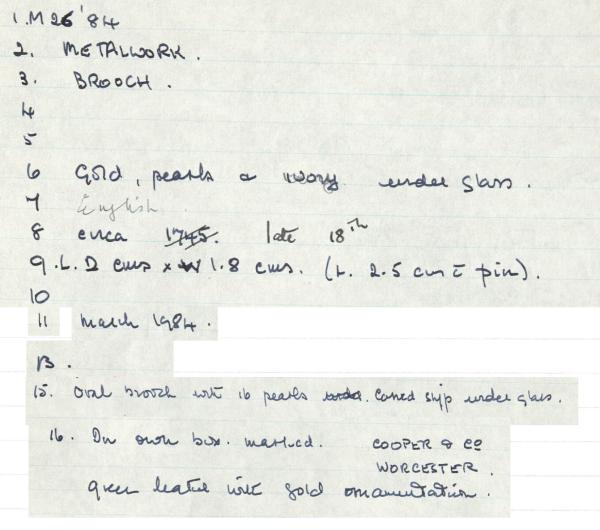 1. M 26 '84
2. METALWORK.
3. BROOCH.
4
5
6 Gold, pearls & ivory under glass.
7 English
8 circa 1745. late 18th
9. L. 2 cms x W 1.8 cms. (L. 2.5 cms c̄ pin).
10
11 March 1984.
13.
15. Oval brooch with 16 pearls under. Carved ship under glass.
16. In own box. marked. COOPER & Co
WORCESTER.
green leather with gold ornamentation.